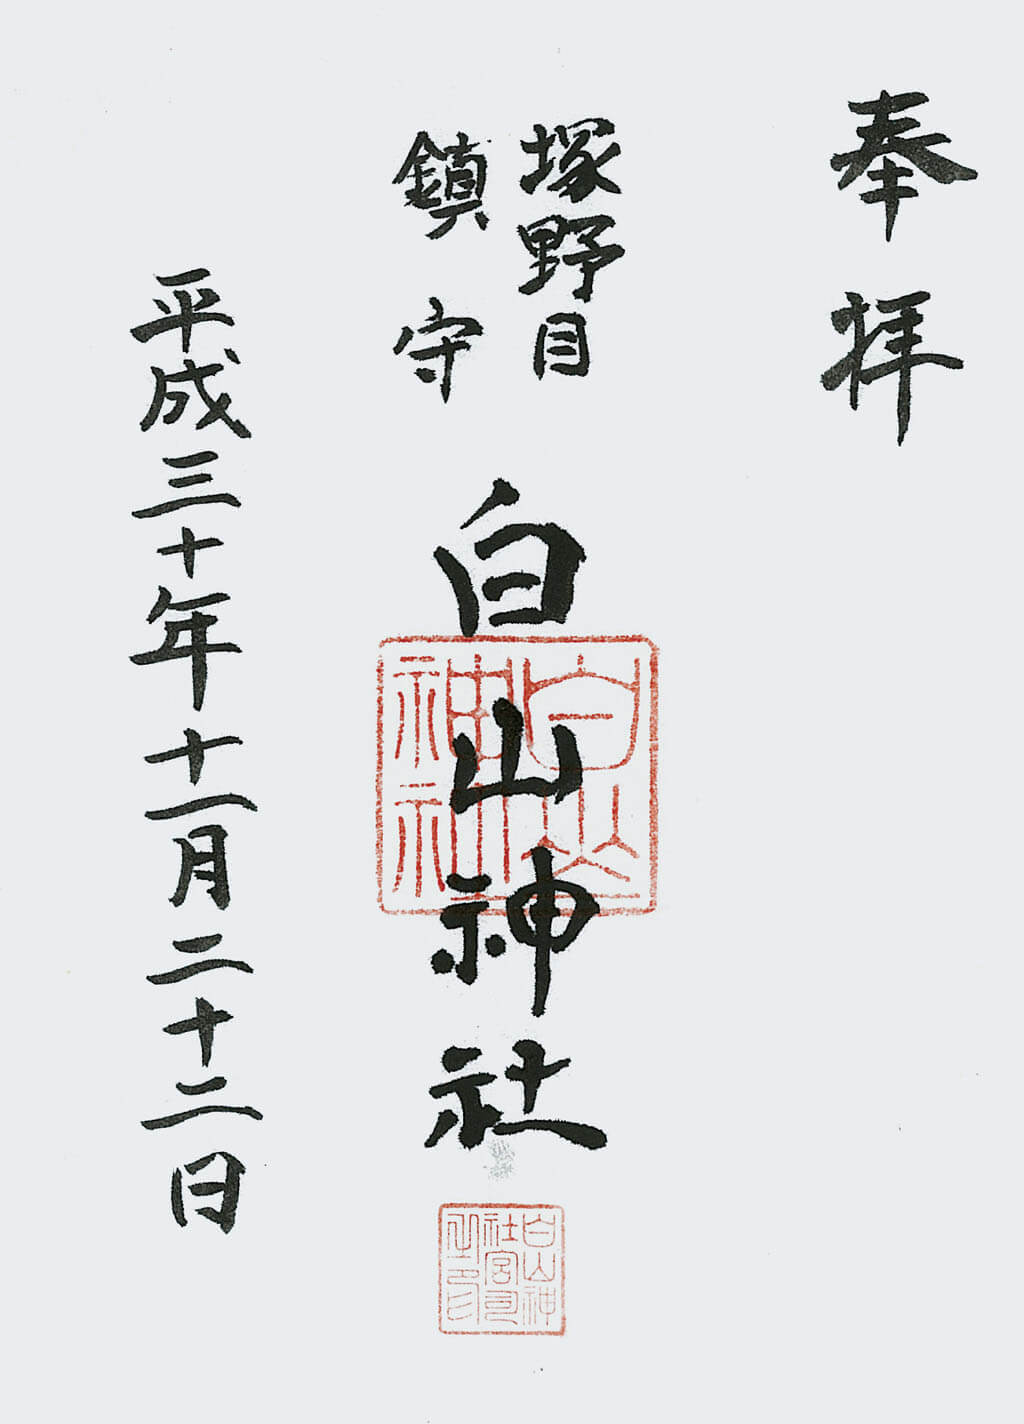 奉拝
塚野目
鎮守
白山神社
平成三十年十一月二十二日
白山
神社
白山神
社宮司
之印